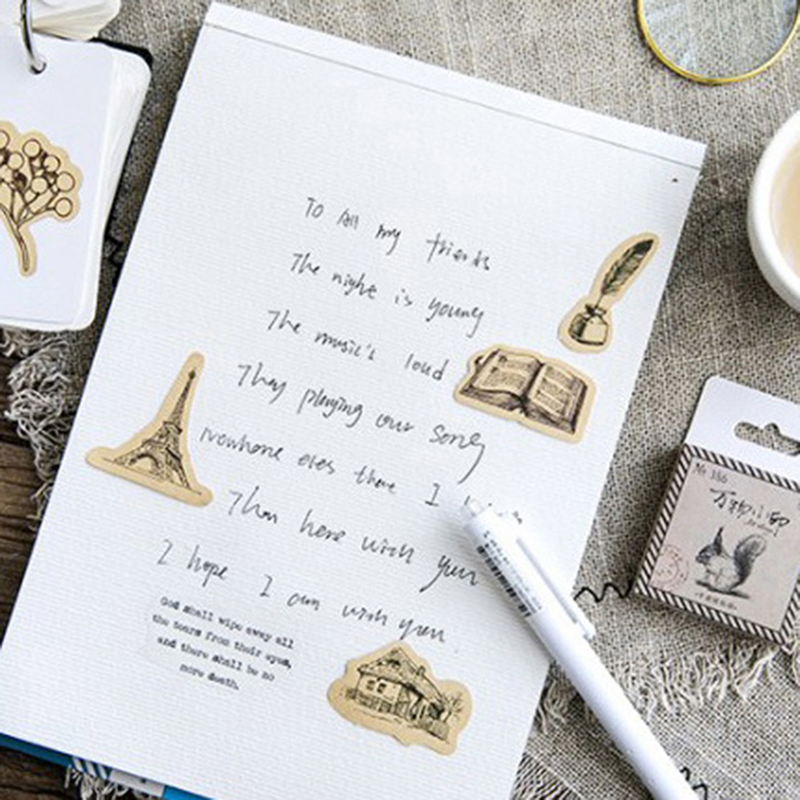 To all my friends
The night is young
The music's loud
They playing our song
nowhere else there I
Than here with you
I hope I am with you
God shall wipe away all
the tears from their eyes,
and there shall be no
more death.
№ 186
万物小印